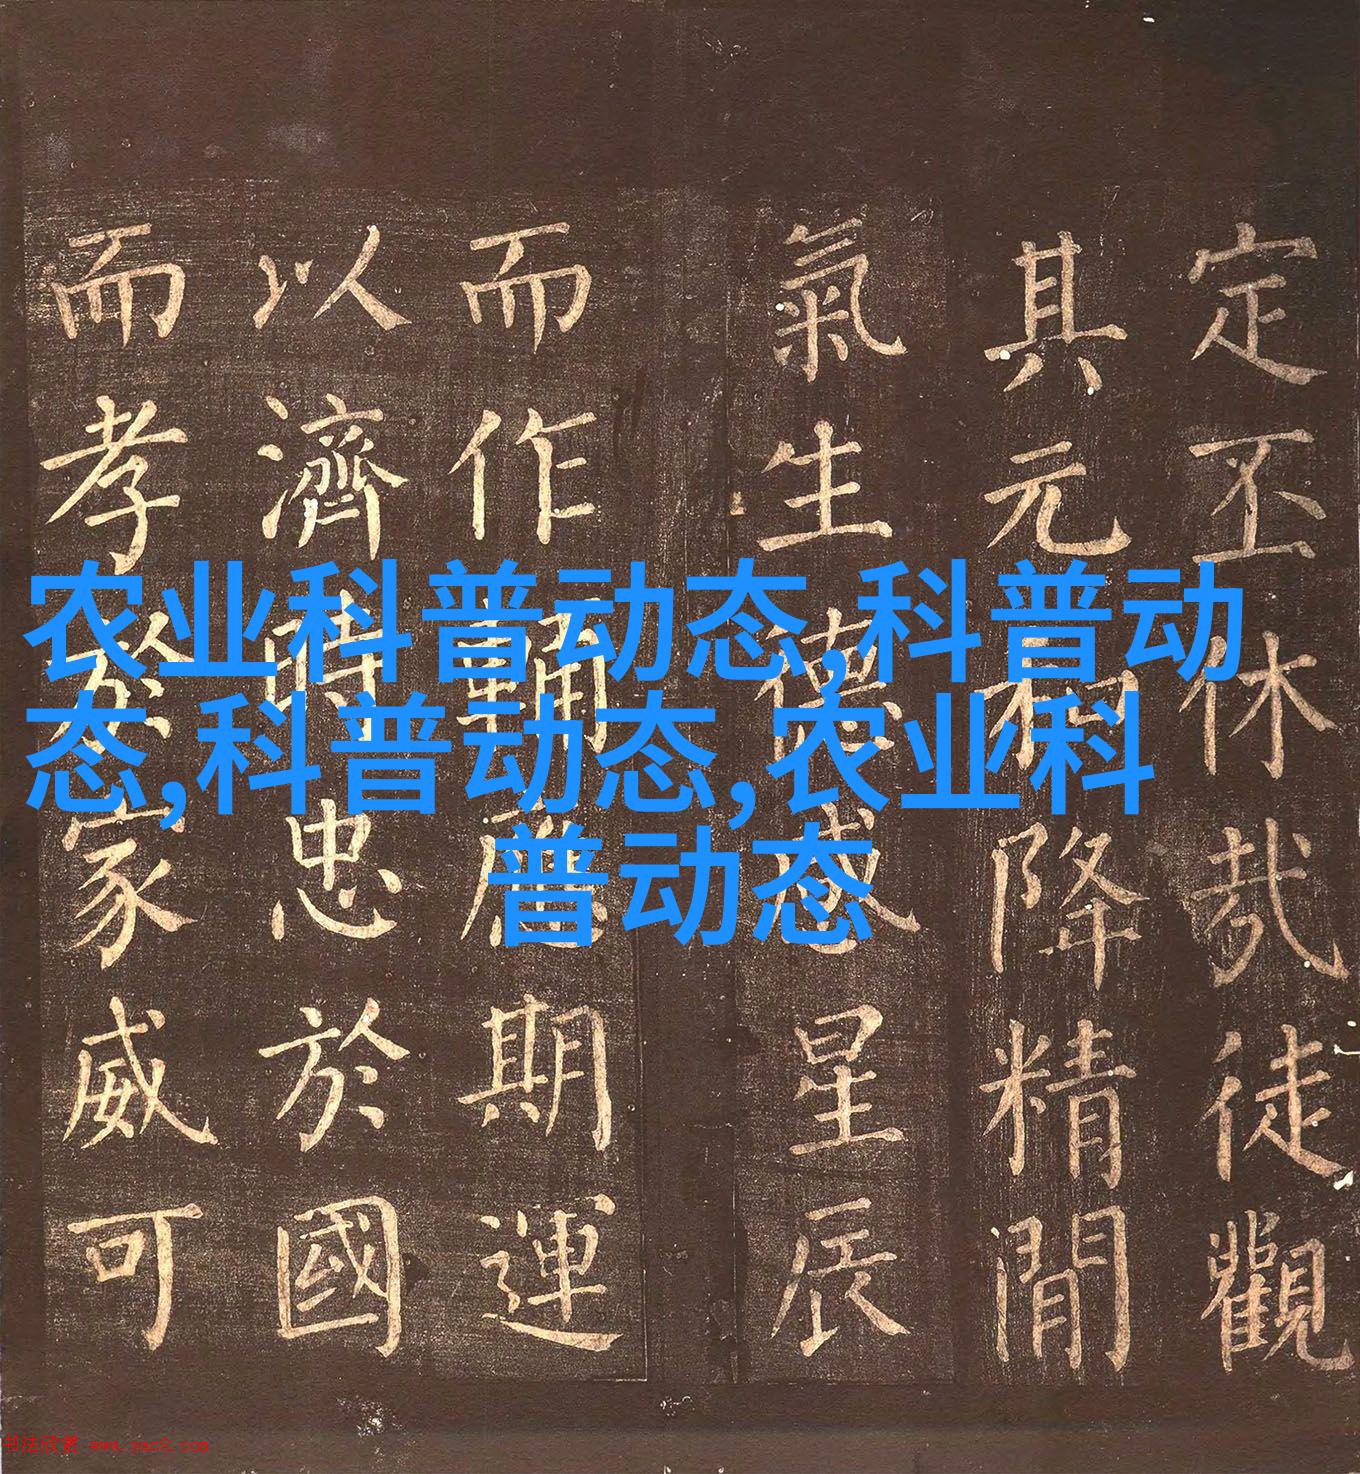 农业科普动态,科普动
态,科普动态,农业科
普动态
定丕休哉徒觀
其元和降精閒
氣生德感星辰
而作輔應期運
以濟時忠於國
而孝於家威可
书法欣赏 www.yac8.com